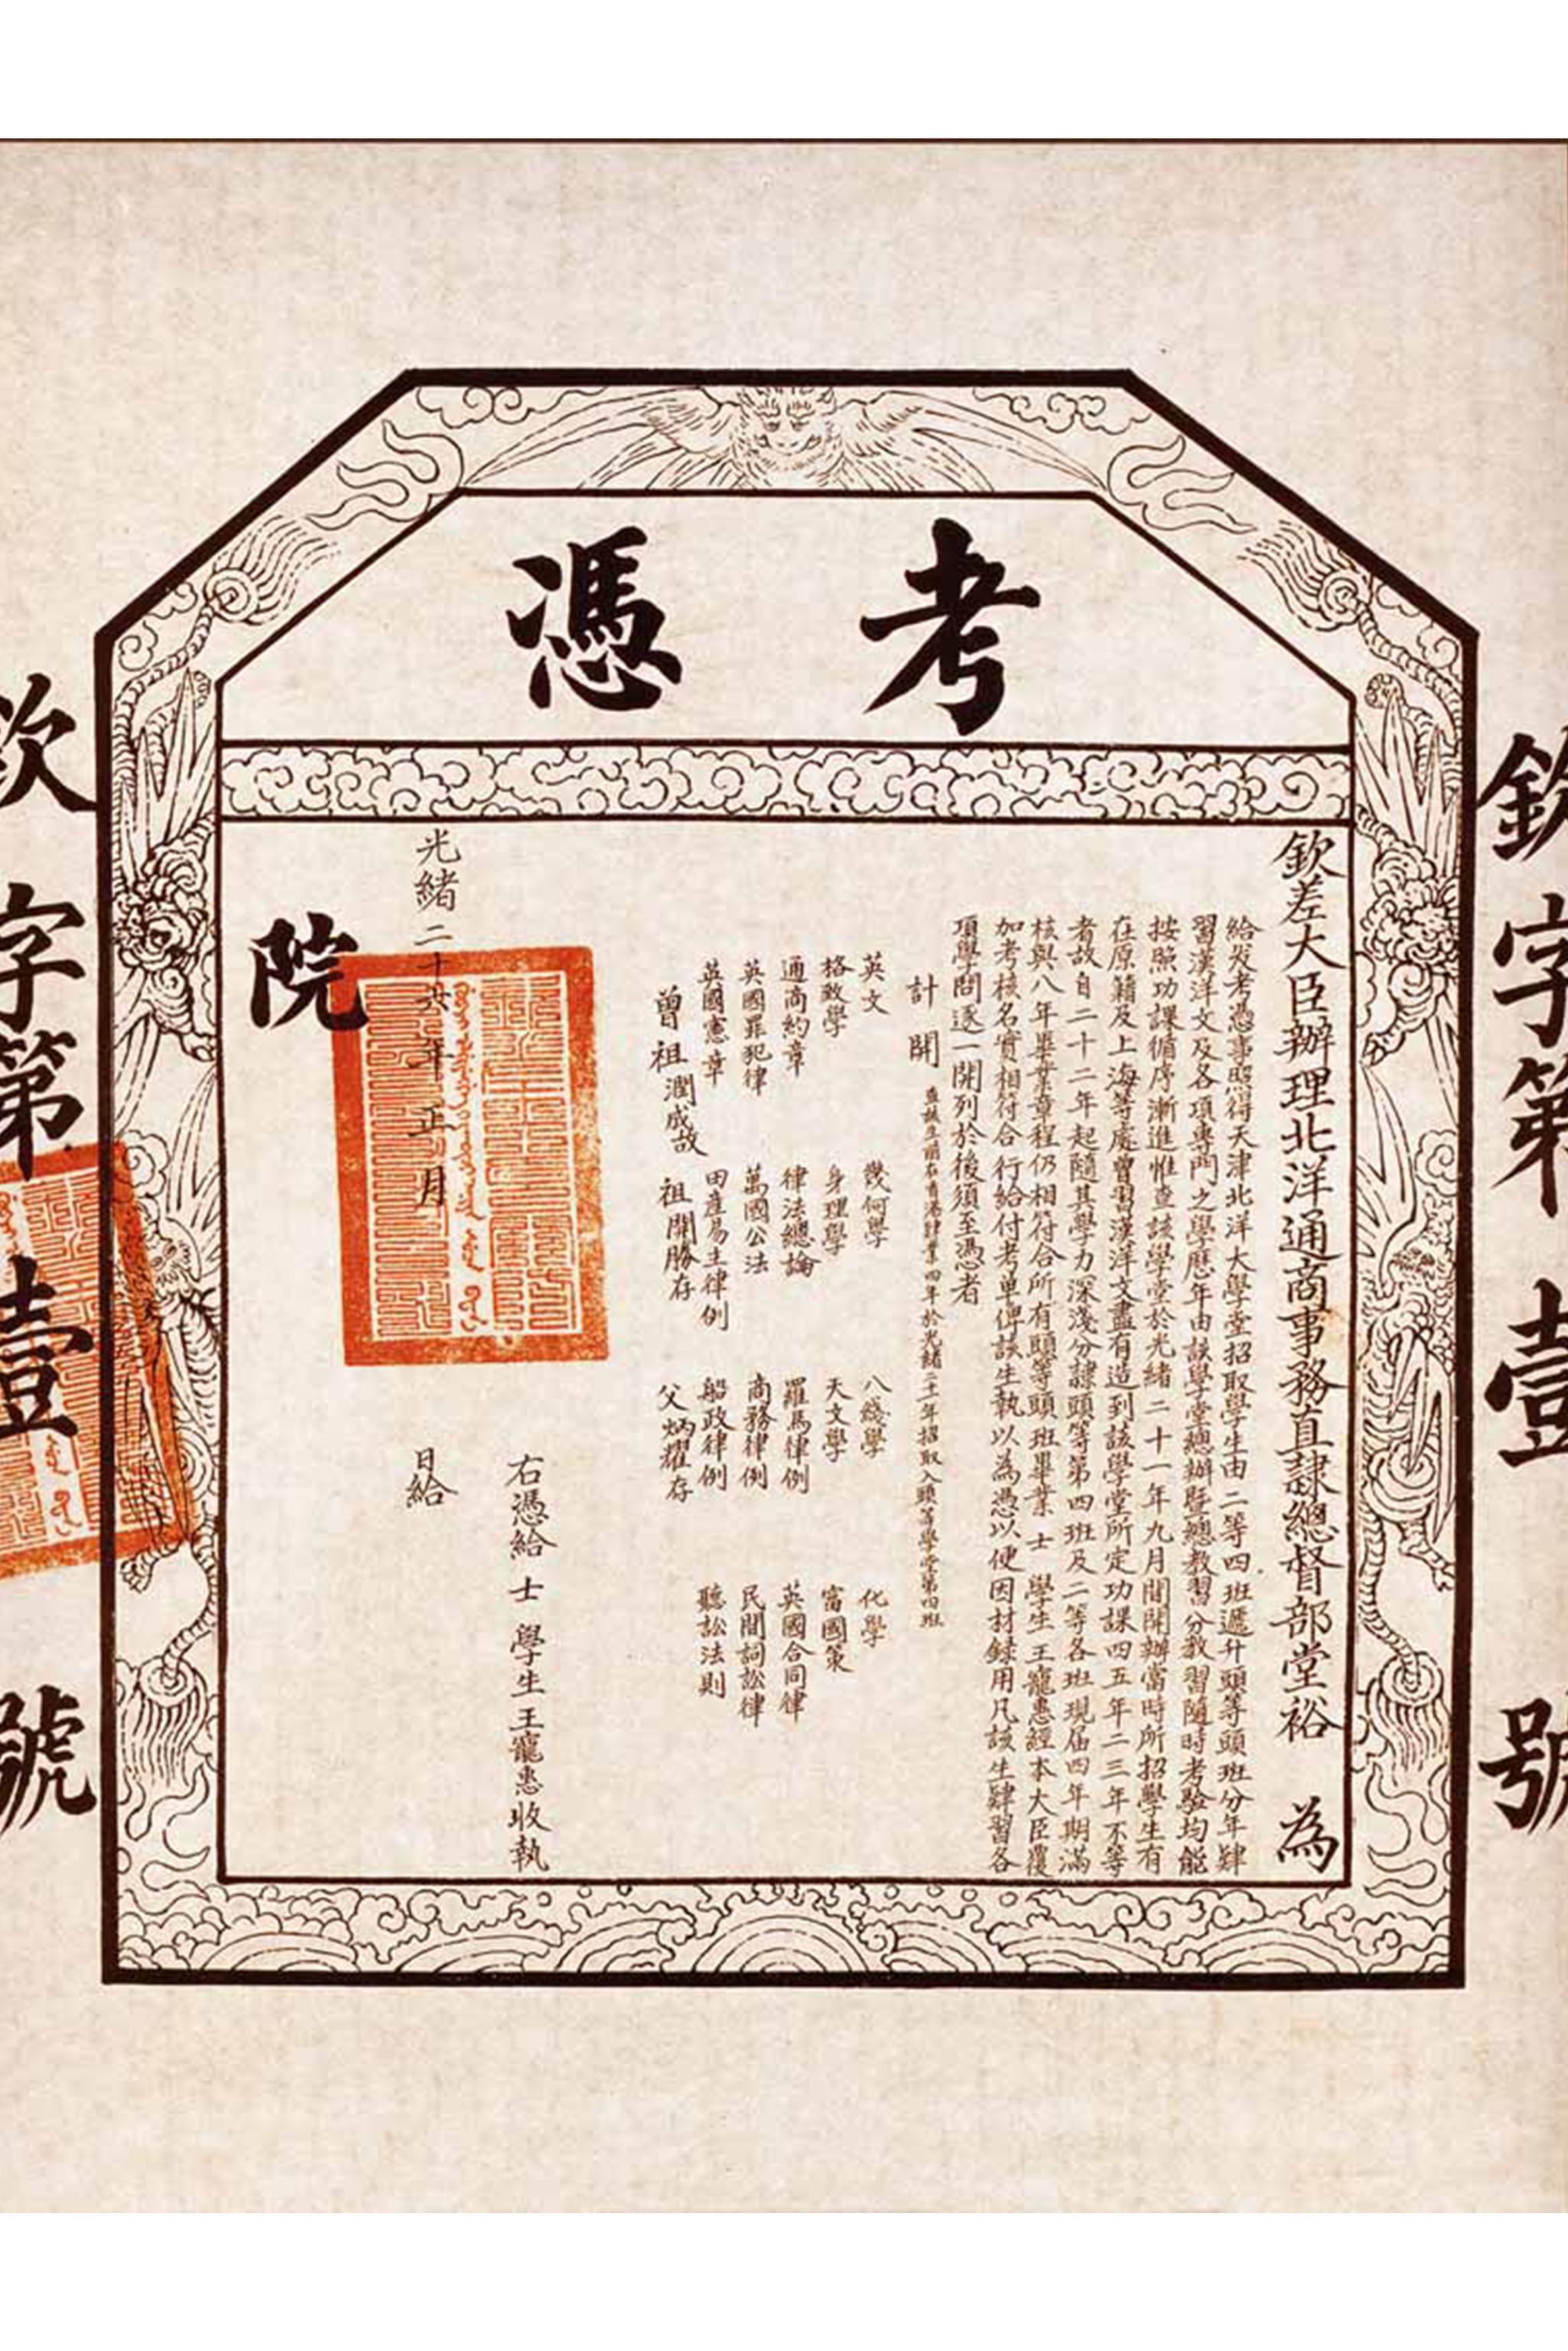 考憑
欽字第壹號
欽差大臣辦理北洋通商事務直隸總督部堂裕 為
給發考憑事照得天津北洋大學堂招取學生由二等四班遞升頭等頭班分年肄
習漢洋文及各項專門之學歷年由該學堂總辦暨總教習分教習隨時考驗均能
按照功課循序漸進惟查該學堂於光緒二十一年九月間開辦當時所招學生有
在原籍及上海等處曾習漢洋文盡有造到該學堂所定功課四五年二三年不等
者故自二十二年起隨其學力深淺分隸頭等第四班及二等各班現屆四年期滿
核與八年畢業章程仍相符合所有頭等頭班畢業士 學生王寵惠經本大臣覆
加考核名實相符合行給付考單俾該生執以為憑以便因材録用凡該生肄習各
項學問逐一開列於後須至憑者
計開 查該生前在香港肄業四年於光緒二十一年招取入頭等學堂第四班
英文 幾何學 八綫學 化學
格致學 身理學 天文學 富國策
通商約章 律法總論 羅馬律例 英國合同律
英國罪犯律 萬國公法 商務律例 民間詞訟律
英國憲章 田產易主律例 船政律例 聽訟法則
曾祖潤成故 祖開勝存 父炳耀存
右憑給 士 學生王寵惠收執
光緒二十六年正月 日給
院
欽字第壹號